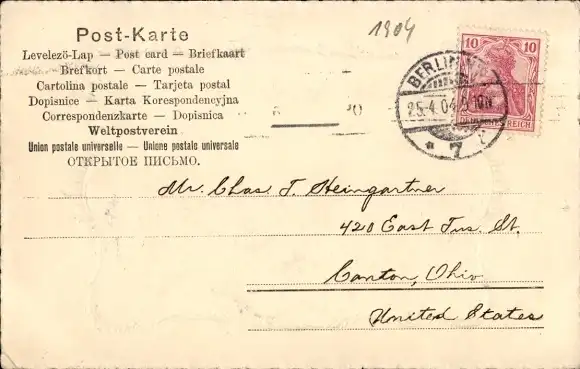 Post-Karte
Levelezö-Lap — Post card — Briefkaart
Brefkort — Carte postale
Cartolina postale — Tarjeta postal
Dopisnice — Karta Korespondencyjna
Correspondenzkarte — Dopisnica
Weltpostverein
Union postale universelle — Unione postale universale
ОТКРЫТОЕ ПИСЬМО.
1904
10 10
REICH
BERLIN
25.4.04
7
Mr. Chas. T. Heingartner
420 East Tus. St.
Canton, Ohio
United States